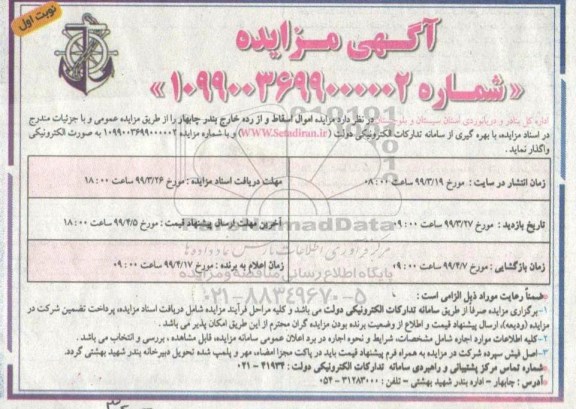 نوبت اول
آگهی مزایده
« شماره ۱۰۹۹۰۰۳۶۹۹۰۰۰۰۰۲ »
اداره کل بنادر و دریانوردی استان سیستان و بلوچستان در نظر دارد مزایده اموال اسقاط و از رده خارج بندر چابهار را از طریق مزایده عمومی و با جزئیات مندرج
در اسناد مزایده، با بهره گیری از سامانه تدارکات الکترونیکی دولت (www.Setadiran.ir) و با شماره مزایده ۱۰۹۹۰۰۳۶۹۹۰۰۰۰۰۲ به صورت الکترونیکی
واگذار نماید .
زمان انتشار در سایت : مورخ ۹۹/۳/۱۹ ساعت ۰۸:۰۰
مهلت دریافت اسناد مزایده : مورخ ۹۹/۳/۲۶ ساعت ۱۸:۰۰
تاریخ بازدید : مورخ ۹۹/۳/۲۷ ساعت ۰۹:۰۰
آخرین مهلت ارسال پیشنهاد قیمت : مورخ ۹۹/۴/۵ ساعت ۱۸:۰۰
زمان بازگشایی : مورخ ۹۹/۴/۷ ساعت ۰۹:۰۰
زمان اعلام به برنده : مورخ ۹۹/۴/۱۷ ساعت ۰۹:۰۰
مرکز فرآوری اطلاعات پارس نماد داده‌ها
پایگاه اطلاع رسانی مناقصه و مزایده
۰۲۱-۸۸۳۴۹۶۷۰-۵
ضمناً رعایت موراد ذیل الزامی است :
۱-برگزاری مزایده صرفاً از طریق سامانه تدارکات الکترونیکی دولت می باشد و کلیه مراحل فرآیند مزایده شامل دریافت اسناد مزایده، پرداخت تضمین شرکت در
مزایده (ودیعه)، ارسال پیشنهاد قیمت و اطلاع از وضعیت برنده بودن مزایده گران محترم از این طریق امکان پذیر می باشد .
۲-کلیه اطلاعات موارد اجاره شامل مشخصات، شرایط و نحوه اجاره در برد اعلان عمومی سامانه مزایده، قابل مشاهده ، بررسی و انتخاب می باشد .
۳-اصل فیش سپرده شرکت در مزایده به همراه فرم پیشنهاد قیمت باید در پاکت مجزا امضاء، مهر و پلمپ شده تحویل دبیرخانه بندر شهید بهشتی گردد.
شماره تماس مرکز پشتیبانی و راهبردی سامانه تدارکات الکترونیکی دولت : ۴۱۹۳۴ - ۰۲۱
آدرس : چابهار - اداره بندر شهید بهشتی - تلفن : ۳۱۲۸۳۰۰۰ - ۰۵۴